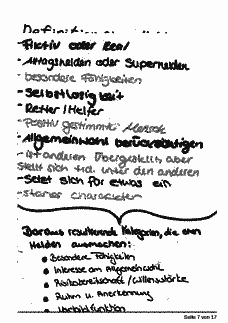 Definition
- Fiktiv oder Real
- Alltagshelden oder Superhelden
- besondere Fähigkeiten
- Selbstlosigkeit
- Retter / Helfer
- Positiv gestimmte Mensch
- Allgemeinwohl berücksichtigen
- ist anderen Übergestellt, aber
stellt sich tld. unter den anderen
- Setzt sich für etwas ein
- starker Charakter
Daraus resultierende Kategorien, die einen
Helden ausmachen:
• Besondere Fähigkeiten
• Interesse am Allgemeinwohl
• Risikobereitschaft / Willensstärke
• Ruhm u. Anerkennung
• Vorbildfunktion
Seite 7 von 17